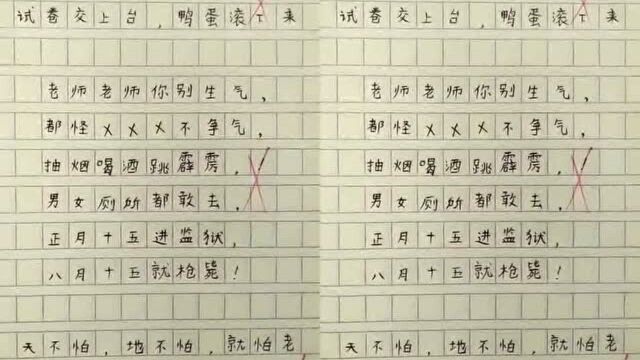 试卷交上台，鸭蛋滚下来
老师老师你别生气，
都怪XXX不争气，
抽烟喝酒跳霹雳，
男女厕所都敢去，
正月十五进监狱，
八月十五就枪毙！
天不怕，地不怕，就怕老
试卷交上台，鸭蛋滚下来
老师老师你别生气，
都怪XXX不争气，
抽烟喝酒跳霹雳，
男女厕所都敢去，
正月十五进监狱，
八月十五就枪毙！
天不怕，地不怕，就怕老